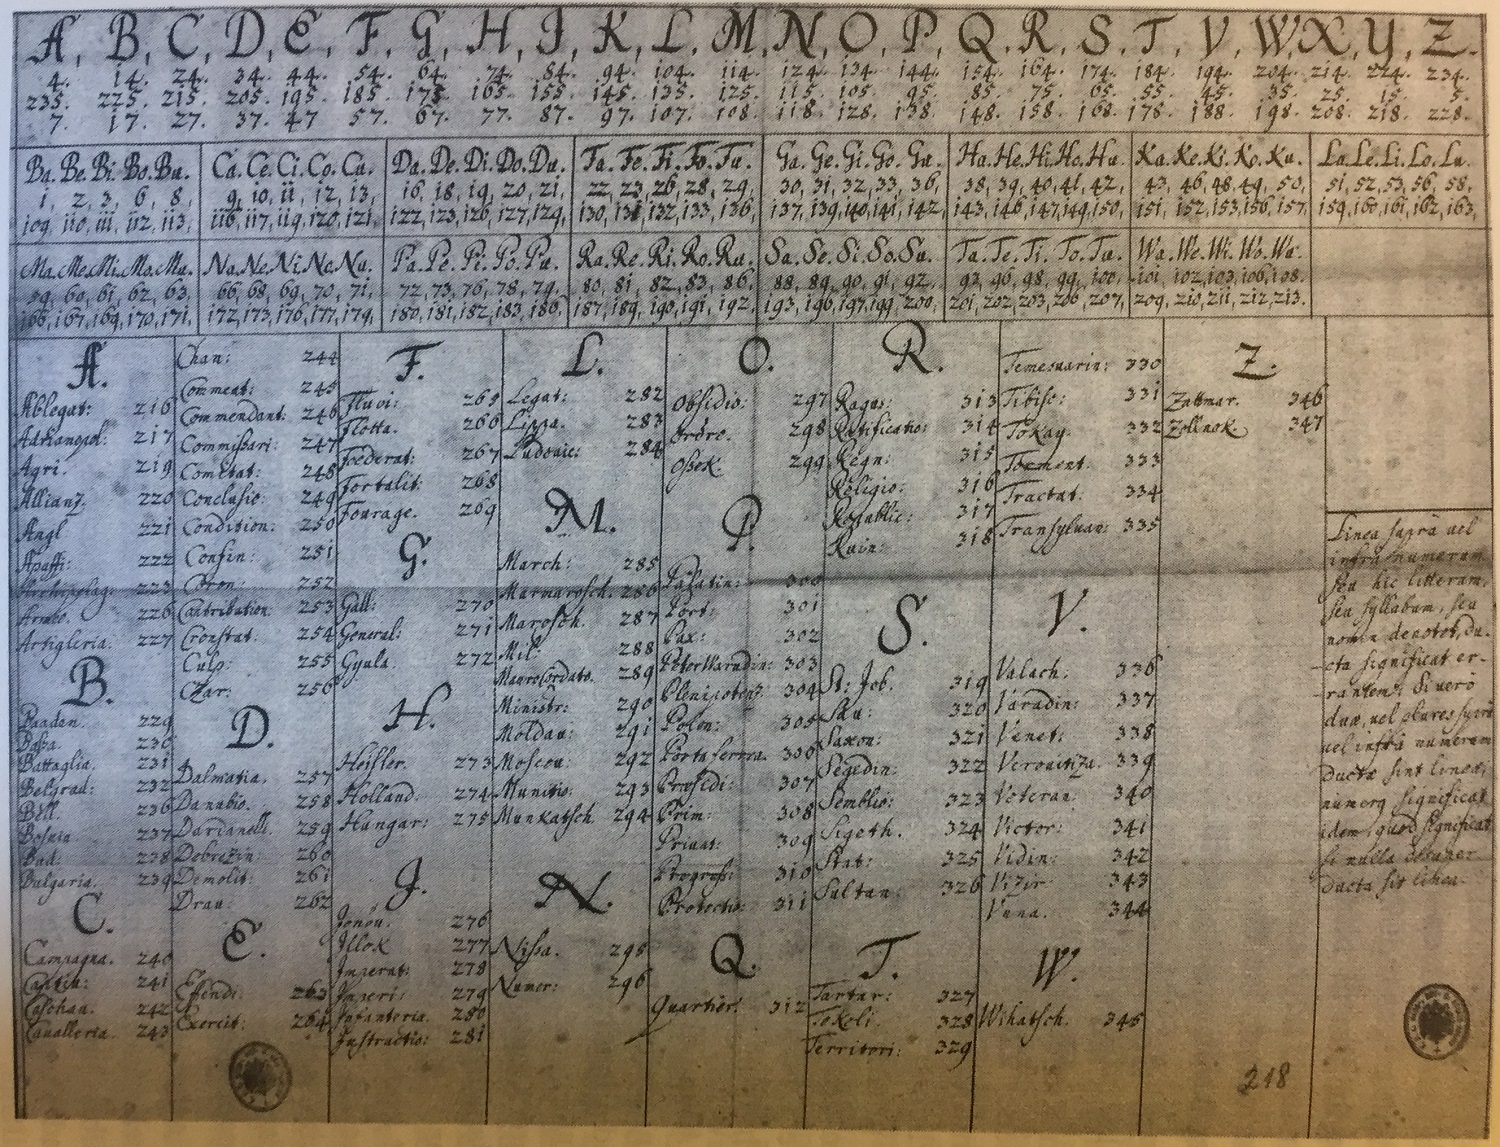 A, B, C, D, E, F, G, H, I, K, L, M, N, O, P, Q, R, S, T, V, W, X, Y, Z.
4. 14. 24. 34. 44. 54. 64. 74. 84. 94. 104. 114. 124. 134. 144. 154. 164. 174. 184. 194. 204. 214. 224. 234.
235. 225. 215. 205. 195. 185. 175. 165. 155. 145. 135. 125. 115. 105. 95. 85. 75. 65. 55. 45. 35. 25. 15. 5.
7. 17. 27. 37. 47 57. 67. 77. 87. 97. 107. 108. 118. 128. 138. 148. 158. 168. 178. 188. 198. 208. 218. 228.
Ba. Be. Bi. Bo. Bu. Ca. Ce. Ci. Co. Cu. Da. De. Di. Do. Du. Fa. Fe. Fi. Fo. Fu. Ga. Ge. Gi. Go. Gu. Ha. He. Hi. Ho. Hu. Ka. Ke. Ki. Ko. Ku. La. Le. Li. Lo. Lu.
1, 2, 3, 6, 8, 9, 10, 11, 12, 13, 16, 18, 19, 20, 21, 22, 23, 26, 28, 29, 30, 31, 32, 33, 36, 38, 39, 40, 41, 42, 43, 46, 48, 49, 50, 51, 52, 53, 56, 58,
109, 110, 111, 112, 113, 116, 117, 119, 120, 121, 122, 123, 126, 127, 129, 130, 131, 132, 133, 136, 137, 139, 140, 141, 142, 143, 146, 147, 149, 150, 151, 152, 153, 156, 157, 159, 160, 161, 162, 163,
Ma. Me. Mi. Mo. Mu. Na. Ne. Ni. No. Nu. Pa. Pe. Pi. Po. Pu. Ra. Re. Ri. Ro. Ru. Sa. Se. Si. So. Su. Ta. Te. Ti. To. Tu. Wa. We. Wi. Wo. Wu.
59, 60, 61, 62, 63, 66, 68, 69, 70, 71, 72, 73, 76, 78, 79, 80, 81, 82, 83, 86, 88, 89, 90, 91, 92, 93, 96, 98, 99, 100, 101, 102, 103, 106, 108.
166, 167, 169, 170, 171, 172, 173, 176, 177, 179, 180, 181, 182, 183, 186, 187, 189, 190, 191, 192, 193, 196, 197, 199, 200, 201, 202, 203, 206, 207, 209, 210, 211, 212, 213.
A.
Ablegat: 216
Adrianopol: 217
Agri. 219
Allianz. 220
Angl 221
Apaffi: 222
Archipelag: 223
Armee. 226
Artigleria. 227
B.
Baaden. 229
Bassa. 230
Battaglia. 231
Belgrad: 232
Bell. 236
Bosnia 237
Bud: 238
Bulgaria. 239
C.
Campagna. 240
241
Caschau. 242
Cavalleria. 243
Chan: 244
Commeat: 245
Commendant: 246
Commissari: 247
Comitat: 248
Conclusio. 249
Condition: 250
Confin: 251
Coron: 252
Contribution. 253
Cronstat. 254
Culp: 255
Czar: 256
D.
Dalmatia. 257
Danubio. 258
Dardanell. 259
Debrezin: 260
Demolit: 261
Drau: 262
E.
Effendi: 263
Exercit: 264
F.
Fluvi: 265
Flotta. 266
Foederat: 267
Fortalit: 268
Fourage. 269
G.
Gall: 270
General: 271
Gyula. 272
H.
Heisler. 273
Holland: 274
Hungar: 275
J.
Jenou. 276
Illok 277
Imperat: 278
Imperi: 279
Infanteria. 280
Instructio: 281
L.
Legat: 282
Lippa. 283
Ludovic: 284
M.
March: 285
Marmarosch. 286
Marosch. 287
Mil: 288
Maurocordato. 289
Ministr: 290
Moldau: 291
Moscou: 292
Munitio: 293
Munkatsch. 294
N.
Nissa. 295
Numer: 296
O.
Obsidio: 297
Ordre. 298
Ossek. 299
P.
Palatin: 300
Port: 301
Pax: 302
PeterWaradin: 303
Plenipotenz 304
Polon: 305
Porta ferrea. 306
Praesidi: 307
Prim: 308
Privat: 309
Progress: 310
Protectio: 311
Q.
Quartier. 312
R.
Ragus: 313
Ratificatio: 314
Regn: 315
Religio: 316
Republic: 317
Ruin: 318
S.
St: Job. 319
Sau: 320
Saxon: 321
Segedin: 322
Semblio: 323
Sigeth. 324
Stat: 325
Sultan: 326
T.
Tartar: 327
Tokoli. 328
Territori: 329
Temesuarin: 330
Tibisc: 331
Tokay. 332
Torment. 333
Tractat. 334
Transylvan: 335
V.
Valach: 336
Varadin: 337
Venet: 338
Verovitiza. 339
Veteran. 340
Victor: 341
Vidin: 342
Vizir: 343
Vnna. 344
W.
Wihatsch. 345
Z.
Zattmar. 346
Zollnok. 347
Linea suprà vel
infrà numerum
seu hic litteram,
seu syllabam, seu
nomen denotet, du-
cta significat er-
rantem. Si verò
duae, vel plures suprà
vel infrà numerum
ductae sint lineae,
numerq significat
idem, quod significat
si nulla
ducta sit linea.
218